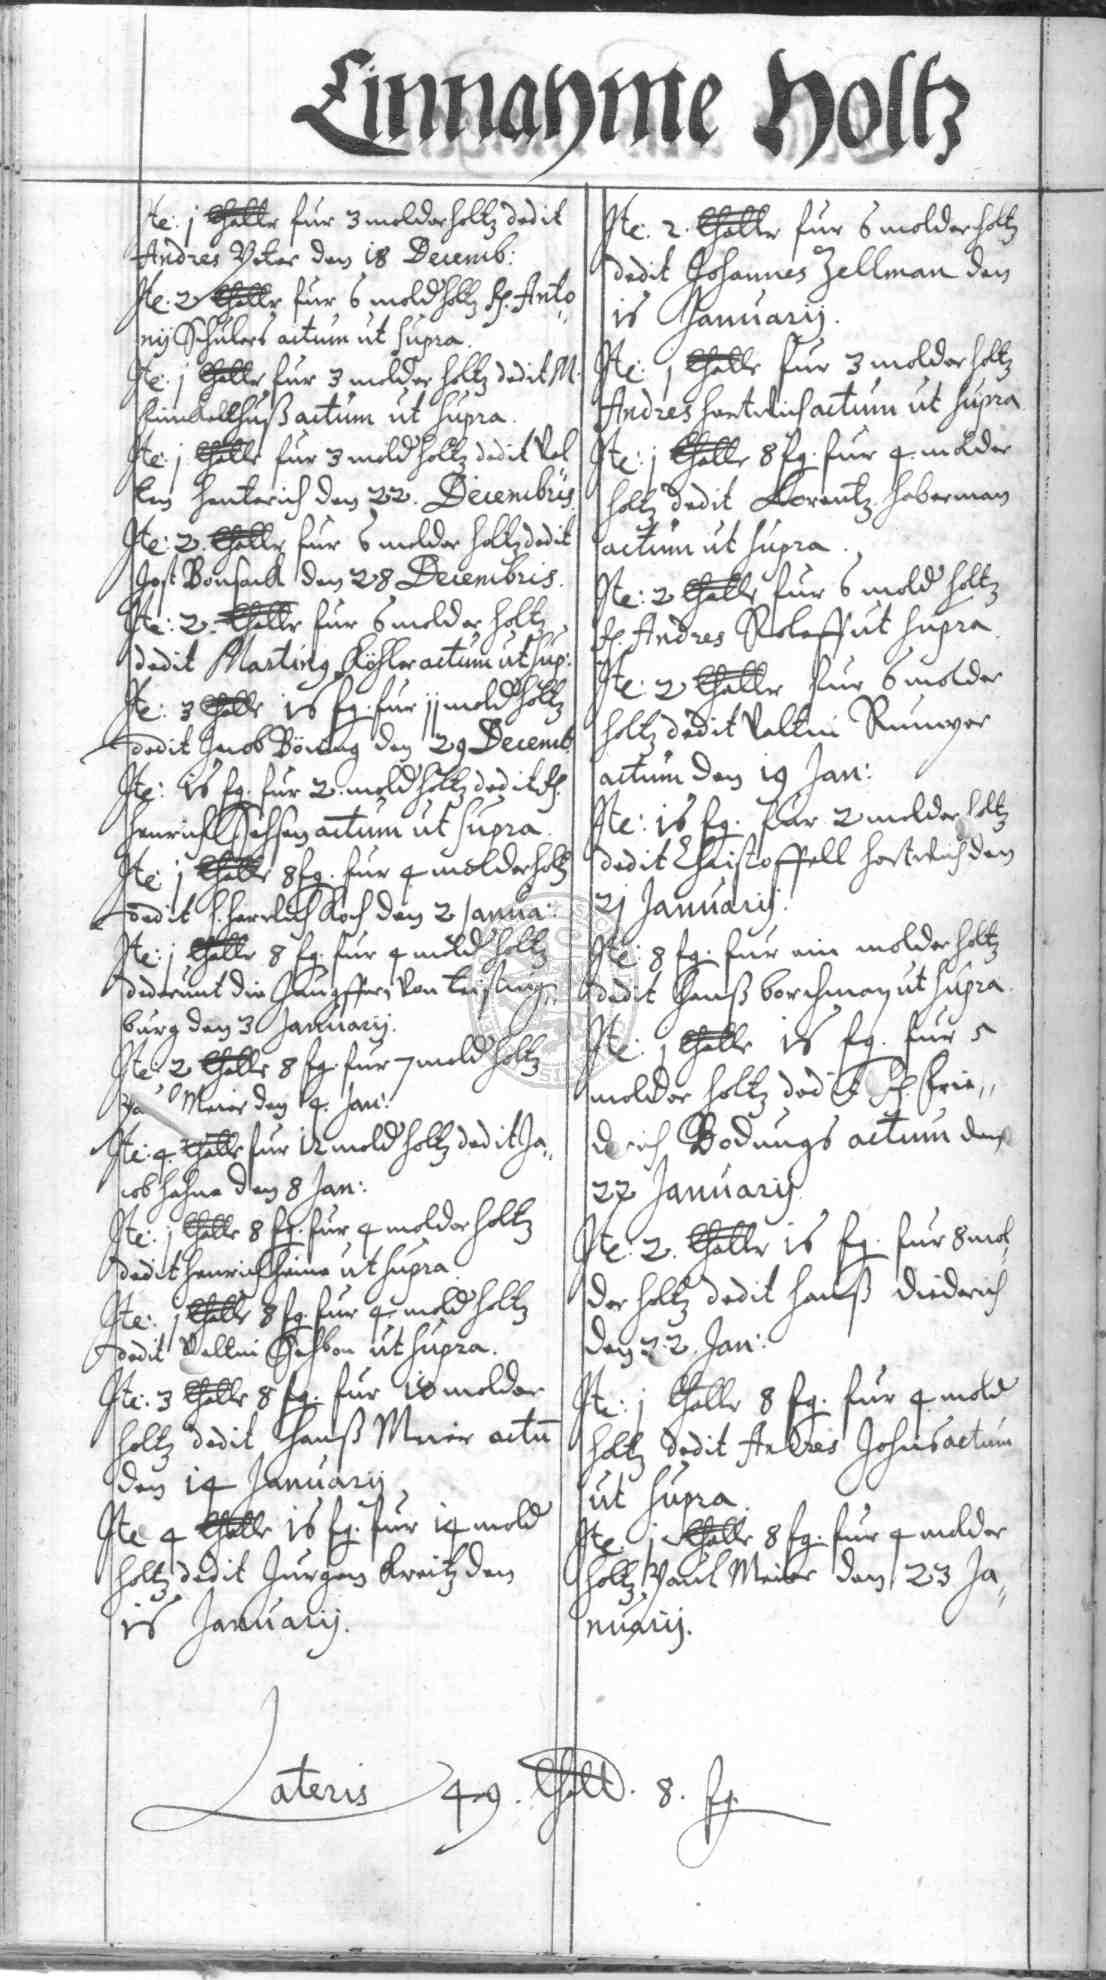 Einnahme Holtz
Ite: j thalle fur 3 molder holtz dedit
Andres Veter den 18 Decemb:
Ite: 2 thalle fur 6 mold holtz H. Anto
nij Schulers actum ut supra.
Ite: j thalle fur 3 molder holtz dedit M.
actum ut supra.
Ite: j thalle fur 3 mold holtz dedit Vel
ten Henterich den 22. Decembris
Ite: 2. thalle fur 6 molder holtz dedit
Jost Bonsack den 28 Decembris.
Ite: 2. thalle fur 6 molder holtz
dedit Marting Köhler actum ut sup:
Ite: 3 thalle 16 fg. fur jj mold holtz
dedit Jacob Böning den 29 Decemb
Ite: 16 fg. fur 2. mold holtz dedit H.
Henrich actum ut supra.
Ite: j thalle 8 fg. fur 4 molder holtz
dedit H. Koch den 2 Janua:
Ite: j thalle 8 fg. fur 4 mold holtz
dederunt die Jungffern von Teistung,,
burg den 3 Januarij.
Ite: 2 thalle 8 fg. fur 7 mold holtz
Meier den 4. Jan:
Ite: 4. thalle fur 12 mold holtz dedit Ja,,
cob Hahne den 8 Jan:
Ite: j thalle 8 fg. fur 4 molder holtz
dedit Henrich Heine ut supra.
Ite: j thalle 8 fg. fur 4. mold holtz
dedit Veltin ut supra.
Ite: 3 thalle 8 fg. fur 10 molder
holtz dedit Hanß Meier actu
den 14 Januarij
Ite 4 thalle 16 fg. fur 14 mold
holtz dedit Jurgen Kreitz den
16 Januarij.
Ite. 2. thalle fur 6 molder holtz
dedit Johannes Zellman den
16 Januarij.
Ite: j thalle fur 3 molder holtz
Andres Hentrich actum ut supra
Ite: j thalle 8 fg. fur 4. molder
holtz dedit Lorentz Haberman
actum ut supra.
Ite: 2 thalle fur 6 mold holtz
H. Andres Roleff ut supra.
Ite: 2 thalle fur 6 molder
holtz dedit Veltin
actum den 19 Jan:
Ite: 16 fg. fur 2 molder holtz
dedit Christoffell Hentrich den
2j Januarij.
Ite: 8 fg. fur ein molder holtz
dedit Hanß Borchman ut supra.
Ite: j thalle 16 fg. fur 5
molder holtz dedit H. Frie,,
derich Bodungs actum den
22 Januarij
Ite: 2. thalle 16 fg. fur 8 mol,,
der holtz dedit Hanß Diederich
den 22. Jan:
Ite: j thalle 8 fg. fur 4 mold
holtz dedit Andres Johns actum
ut supra.
Ite. j thalle 8 fg. fur 4 molder
holtz Paul Meier den 23 Ja,,
nuarij.
Lateris 49. thall. 8. fg.